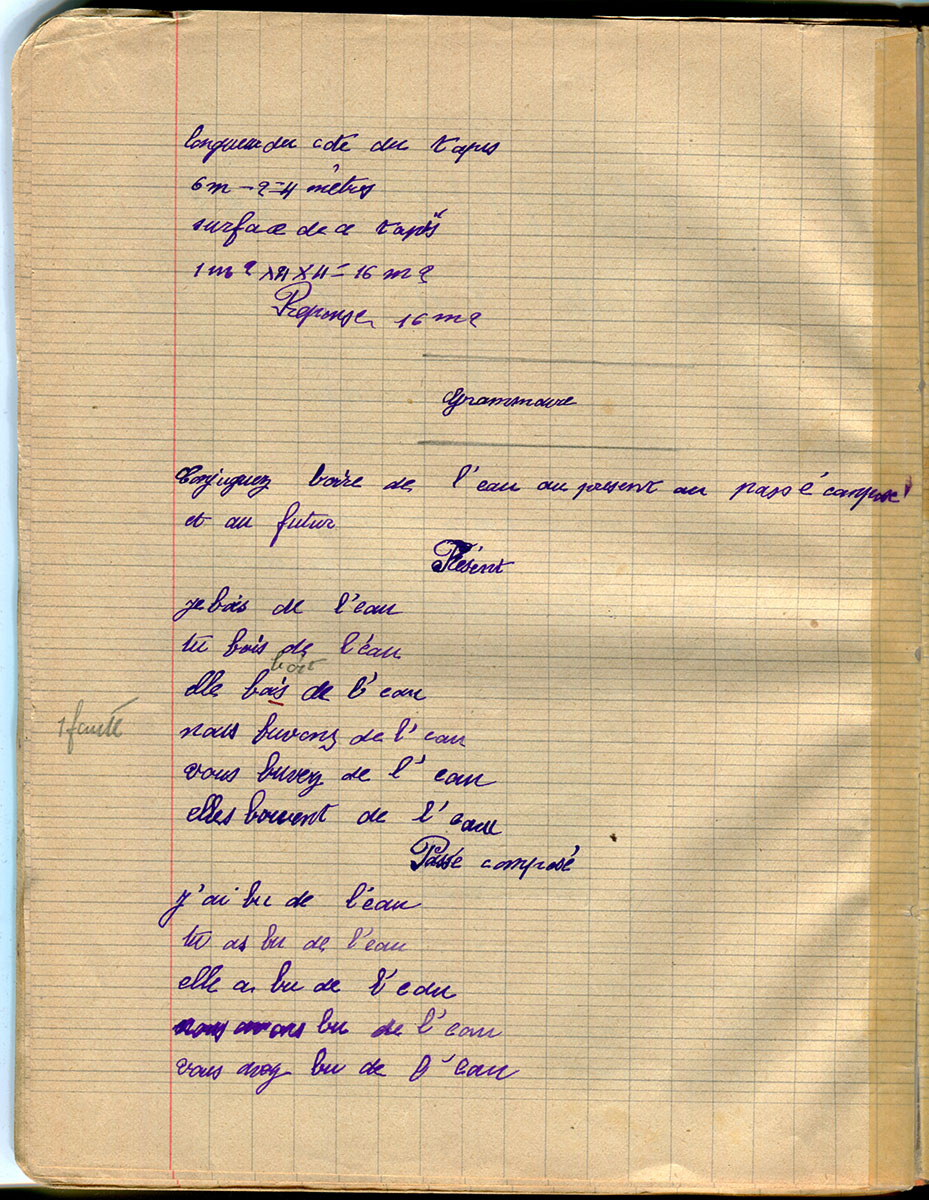 longueur du cote du tapis
6m - 2 = 4 mètres
surface de ce tapis
1 m2 x 4 x 4 = 16 m2
Reponse 16 m2
Grammaire
Conjuguez boire de l'eau au present au passé composé
et au futur
Présent
je bois de l'eau
tu bois de l'éau
boit
elle bois de l'eau
1 faute
nous buvons de l'eau
vous buvez de l'eau
elles boivent de l'eau
Passé composé
j'ai bu de l'éau
tu as bu de l'eau
elle a bu de l'eau
nous avons bu de l'eau
vous avez bu de l'eau